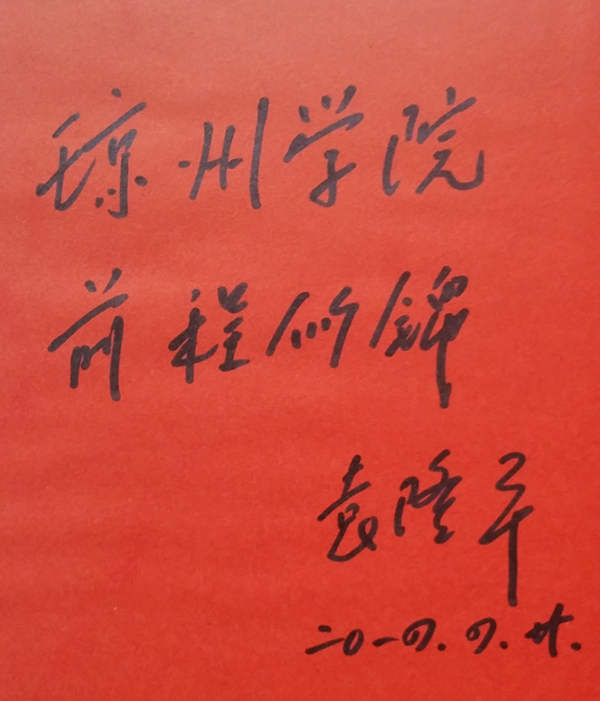 琼州学院
前程似锦
袁隆平
二〇一四.四.廿.